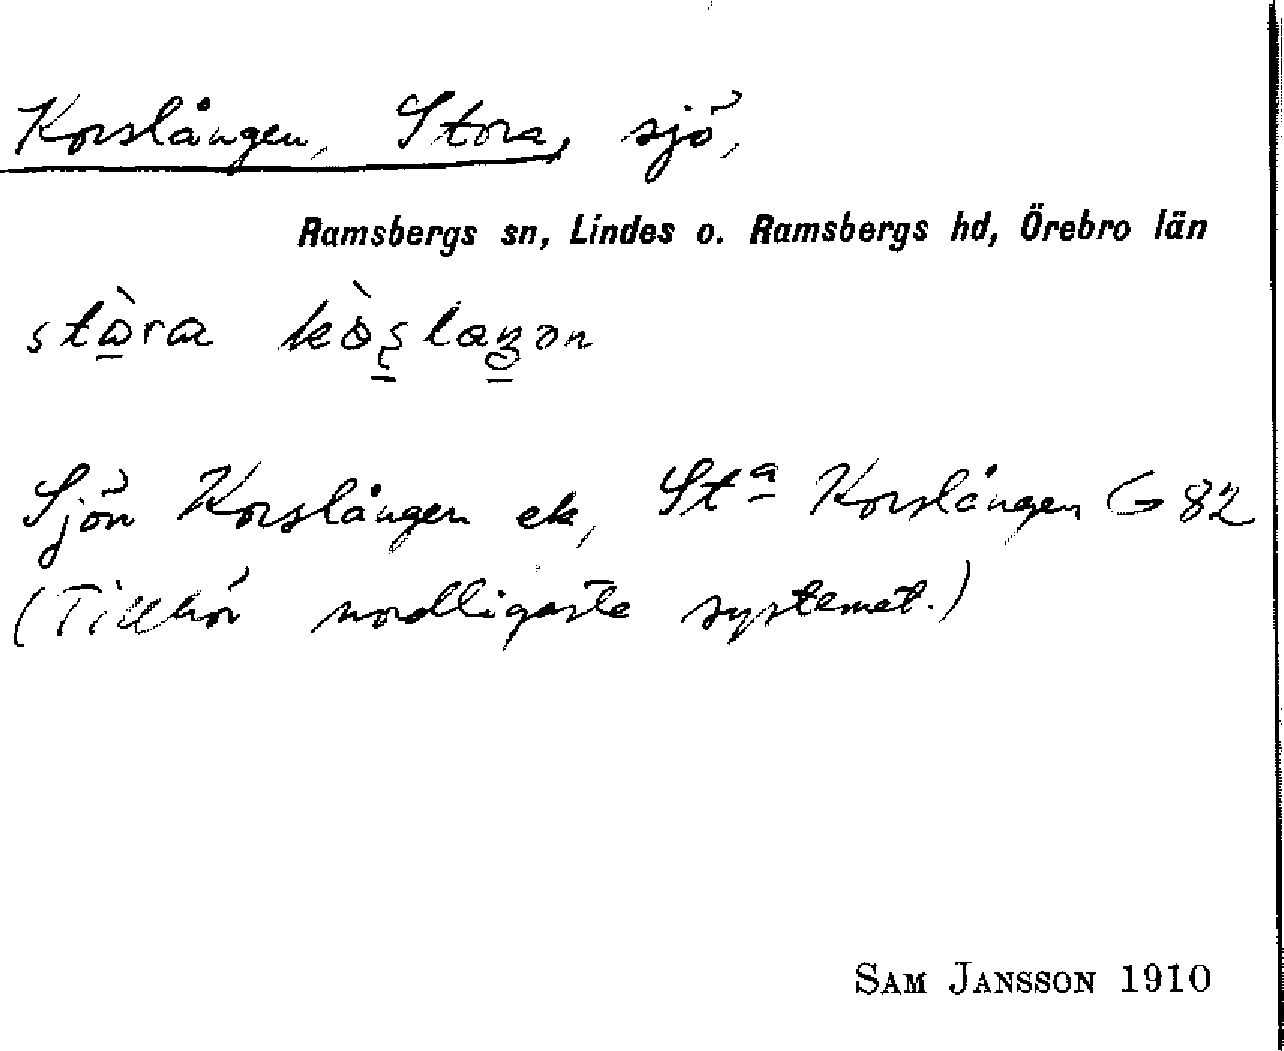 Korslången, Stora, sjö,
Ramsbergs sn, Lindes o. Ramsbergs hd, Örebro län
Sjön Korslången ek, Stª Korslången G 82
(Tillhör nordligaste systemet.)
SAM JANSSON 1910